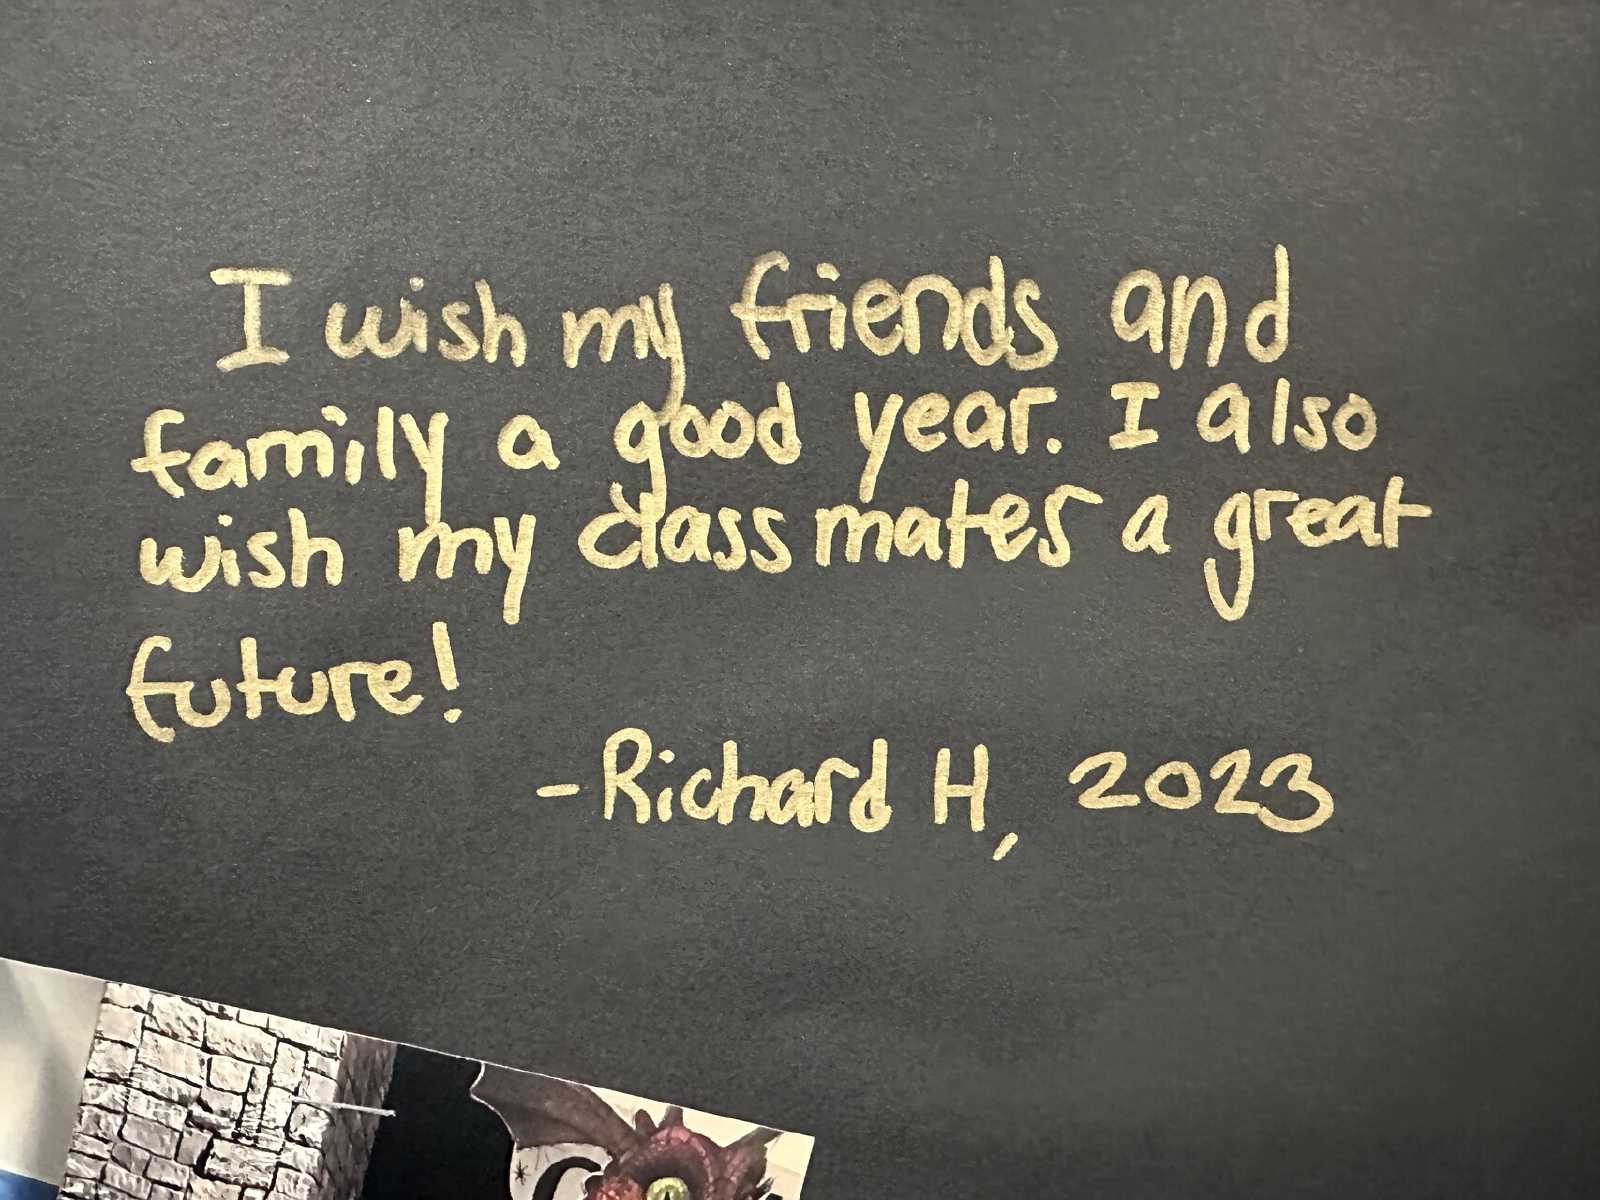 I wish my friends and
family a good year. I also
wish my classmates a great
future!
- Richard H, 2023